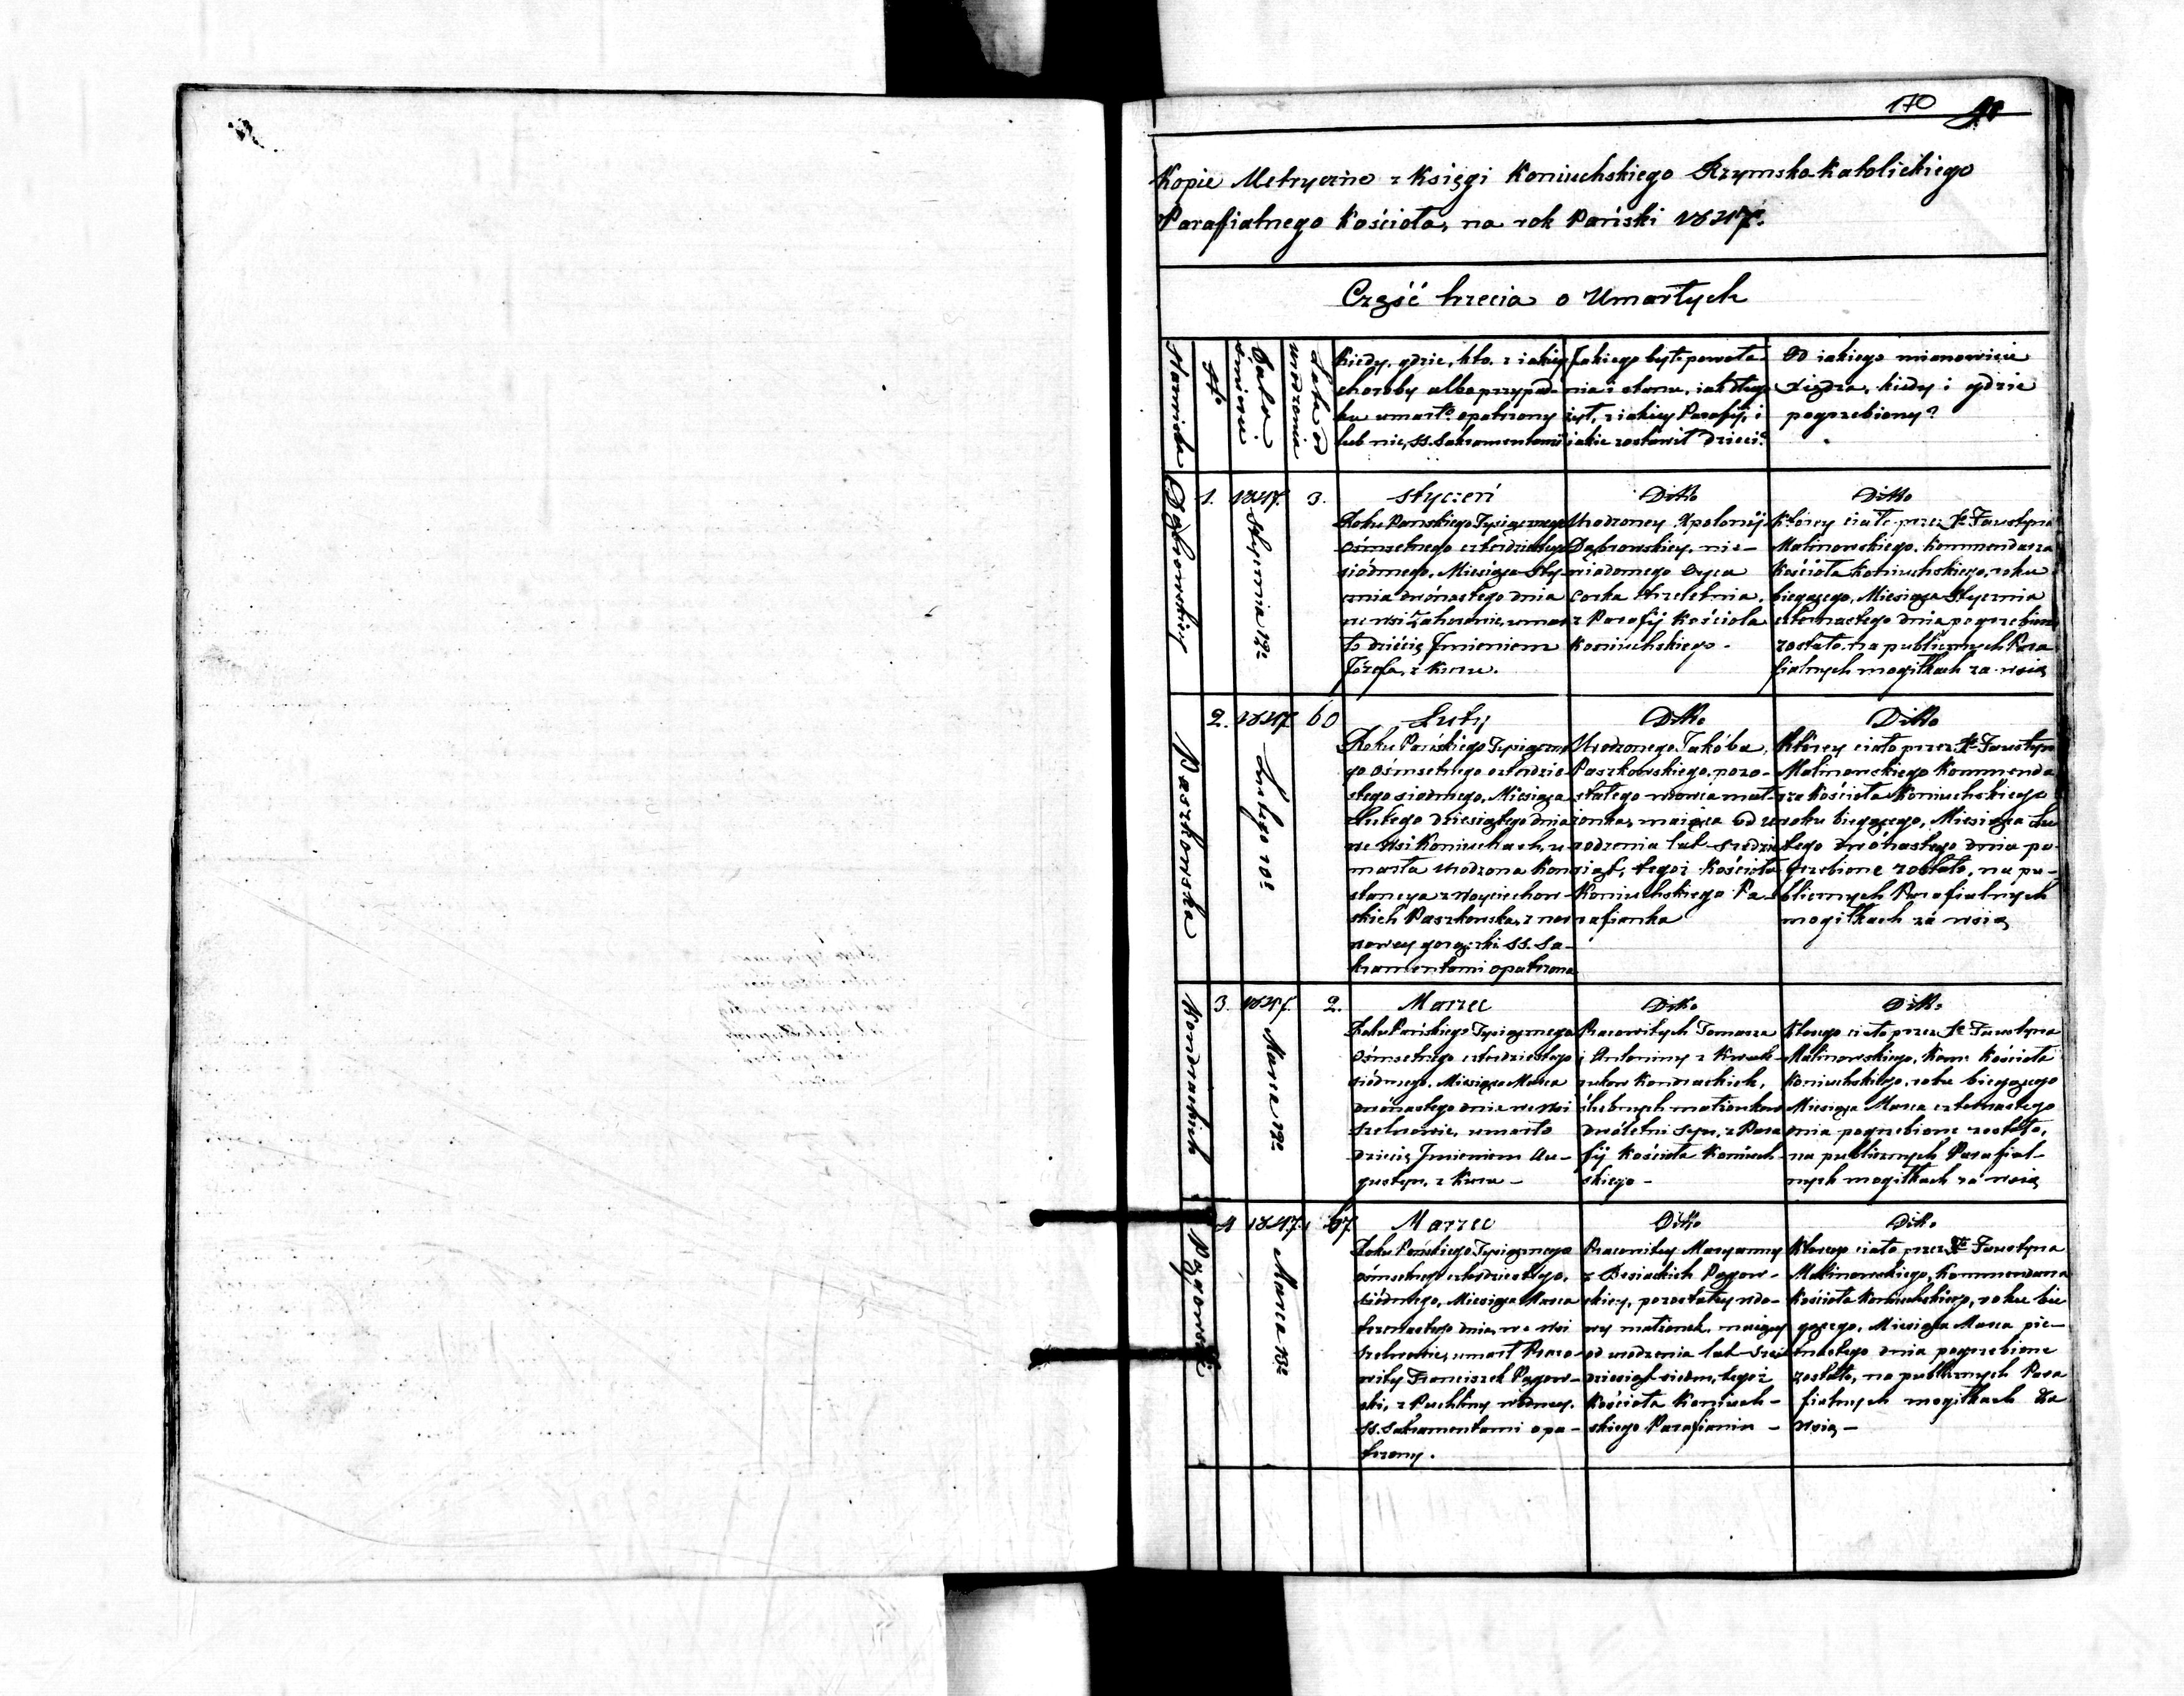 170
Kopie Metryczne z Księgi Koniuchskiego Rzymsko Katolickiego
Parafialnego Kościoła, na rok Pański 1847.
Część trzecia o Umarłych
Nazwiska
Nro
Data śmierci
Lata od urodzenia
Kiedy, gdzie, kto, z iakiey
choroby albo przypad-
ku umarł? opatrzony
lub nie, SS. Sakramentami
Jakiego był powoła-
nia i stanu, iak długo
żył, z iakiey Parafij, i
jakie zostawił dzieci?
Od iakiego mianowicie
Xiędza, kiedy i gdzie
pogrzebiony?
Dąbrowskiey
1.
1847.
Stycznia 12o
3.
Styczeń
Roku Pańskiego Tysiącznego
Ośmsetnego czterdziestego
siódmego, Miesiąca Sty-
cznia dwónastego dnia
we wsi umar-
ło dziécię Jmieniem
Józefa, z Kuru.
Ditto
Urodzoney Apolonij
Dąbrowskiey, nie-
wiadomego Oyca
corka trzeletnia,
z Parafij Kościoła
Koniuchskiego -
Ditto
Którey ciało przez X. Faustyna
Malinowskiego, Kommendarza
Kościoła Koniuchskiego, roku
biegącego, Miesiąca Stycznia
czternastego dnia pogrzebione
zostało, na publicznych Para
fialnych mogiłkach za wsią
Paszkowska
2.
1847
Lutego 10o
60
Luty
Roku Pańskiego Tysiączne
go ośmsetnego czterdzie-
stego siodmego, Miesiąca
Lutego dziesiątego dnia
we wsi Koniuchach, u-
marła Urodzona Kon-
stancya z Woyciechow-
skich Paszkowska, z ner
wowey gorączki SS. Sa-
kramentami opatrzona
Ditto
Urodzonego Jakóba
Paszkowskiego, pozo-
stałego wdowca mał-
żonka, maiąca od u
rodzenia lat sześdzie
siąt, tegoż Kościoła
Koniuchskiego Pa-
rafianka
Ditto
Którey ciało przez X. Faustyna
Malinowskiego Kommenda
rza Kościoła Koniuchskiego
roku biegącego, Miesiąca Lu
tego dwónastego dnia po-
grzebione zostało, na pu-
blicznych Parafialnych
mogiłkach za wsią
Kondrackich
3.
1847.
Marca 12o
2.
Marzec
Roku Pańskiego Tysiącznego
Ośmsetnego czterdziestego
siódmego, Miesiąca Marca
dwónastego dnia we wsi
umarło
dziecię Jmieniem Au-
gustyn, z Kuru -
Ditto
Pracowitych Tomasza
i Antoniny z
Kondrackich,
ślubnych małżonkow
dwóletni syn, z Para
fij Kościoła Koniuch-
skiego -
Ditto
Którego ciało przez X. Faustyna
Malinowskiego, Kom: Kościoła
Koniuchskiego, roku biegącego
Miesiąca Marca czternastego
dnia pogrzebione zostało,
na publicznych Parafial-
nych mogiłkach za wsią
4
1847.
Marca 13o
67
Marzec
Roku Pańskiego Tysiącznego
ośmsetnego czterdziestego,
siódmego, Miesiąca Marca
trzynastego dnia, we wsi
umarł Praco-
wity Franciszek
ski, z Puchliny wodney,
SS. Sakramentami opa-
trzony.
Ditto
Pracowitey Maryanny
z
skiey, pozostałey wdo-
wy małżonek, maiący
od urodzenia lat sześ
dziesiąt siedm, tegoż
Kościoła Koniuch-
skiego Parafianin -
Ditto
Którego ciało przez X. Faustyna
Malinowskiego, Kommendarza
Kościoła Koniuchskiego, roku bie
gącego, Miesiąca Marca pię-
tnastego dnia pogrzebione
zostało, na publicznych Para
fialnych mogiłkach za
wsią -